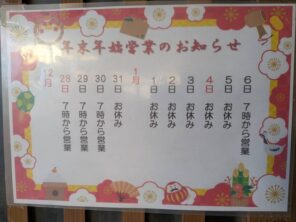 年末年始営業のお知らせ
12月
28日 7時から営業
29日 7時から営業
30日 7時から営業
31日 お休み
1月
1日 お休み
2日 お休み
3日 お休み
4日 お休み
5日 お休み
6日 7時から営業